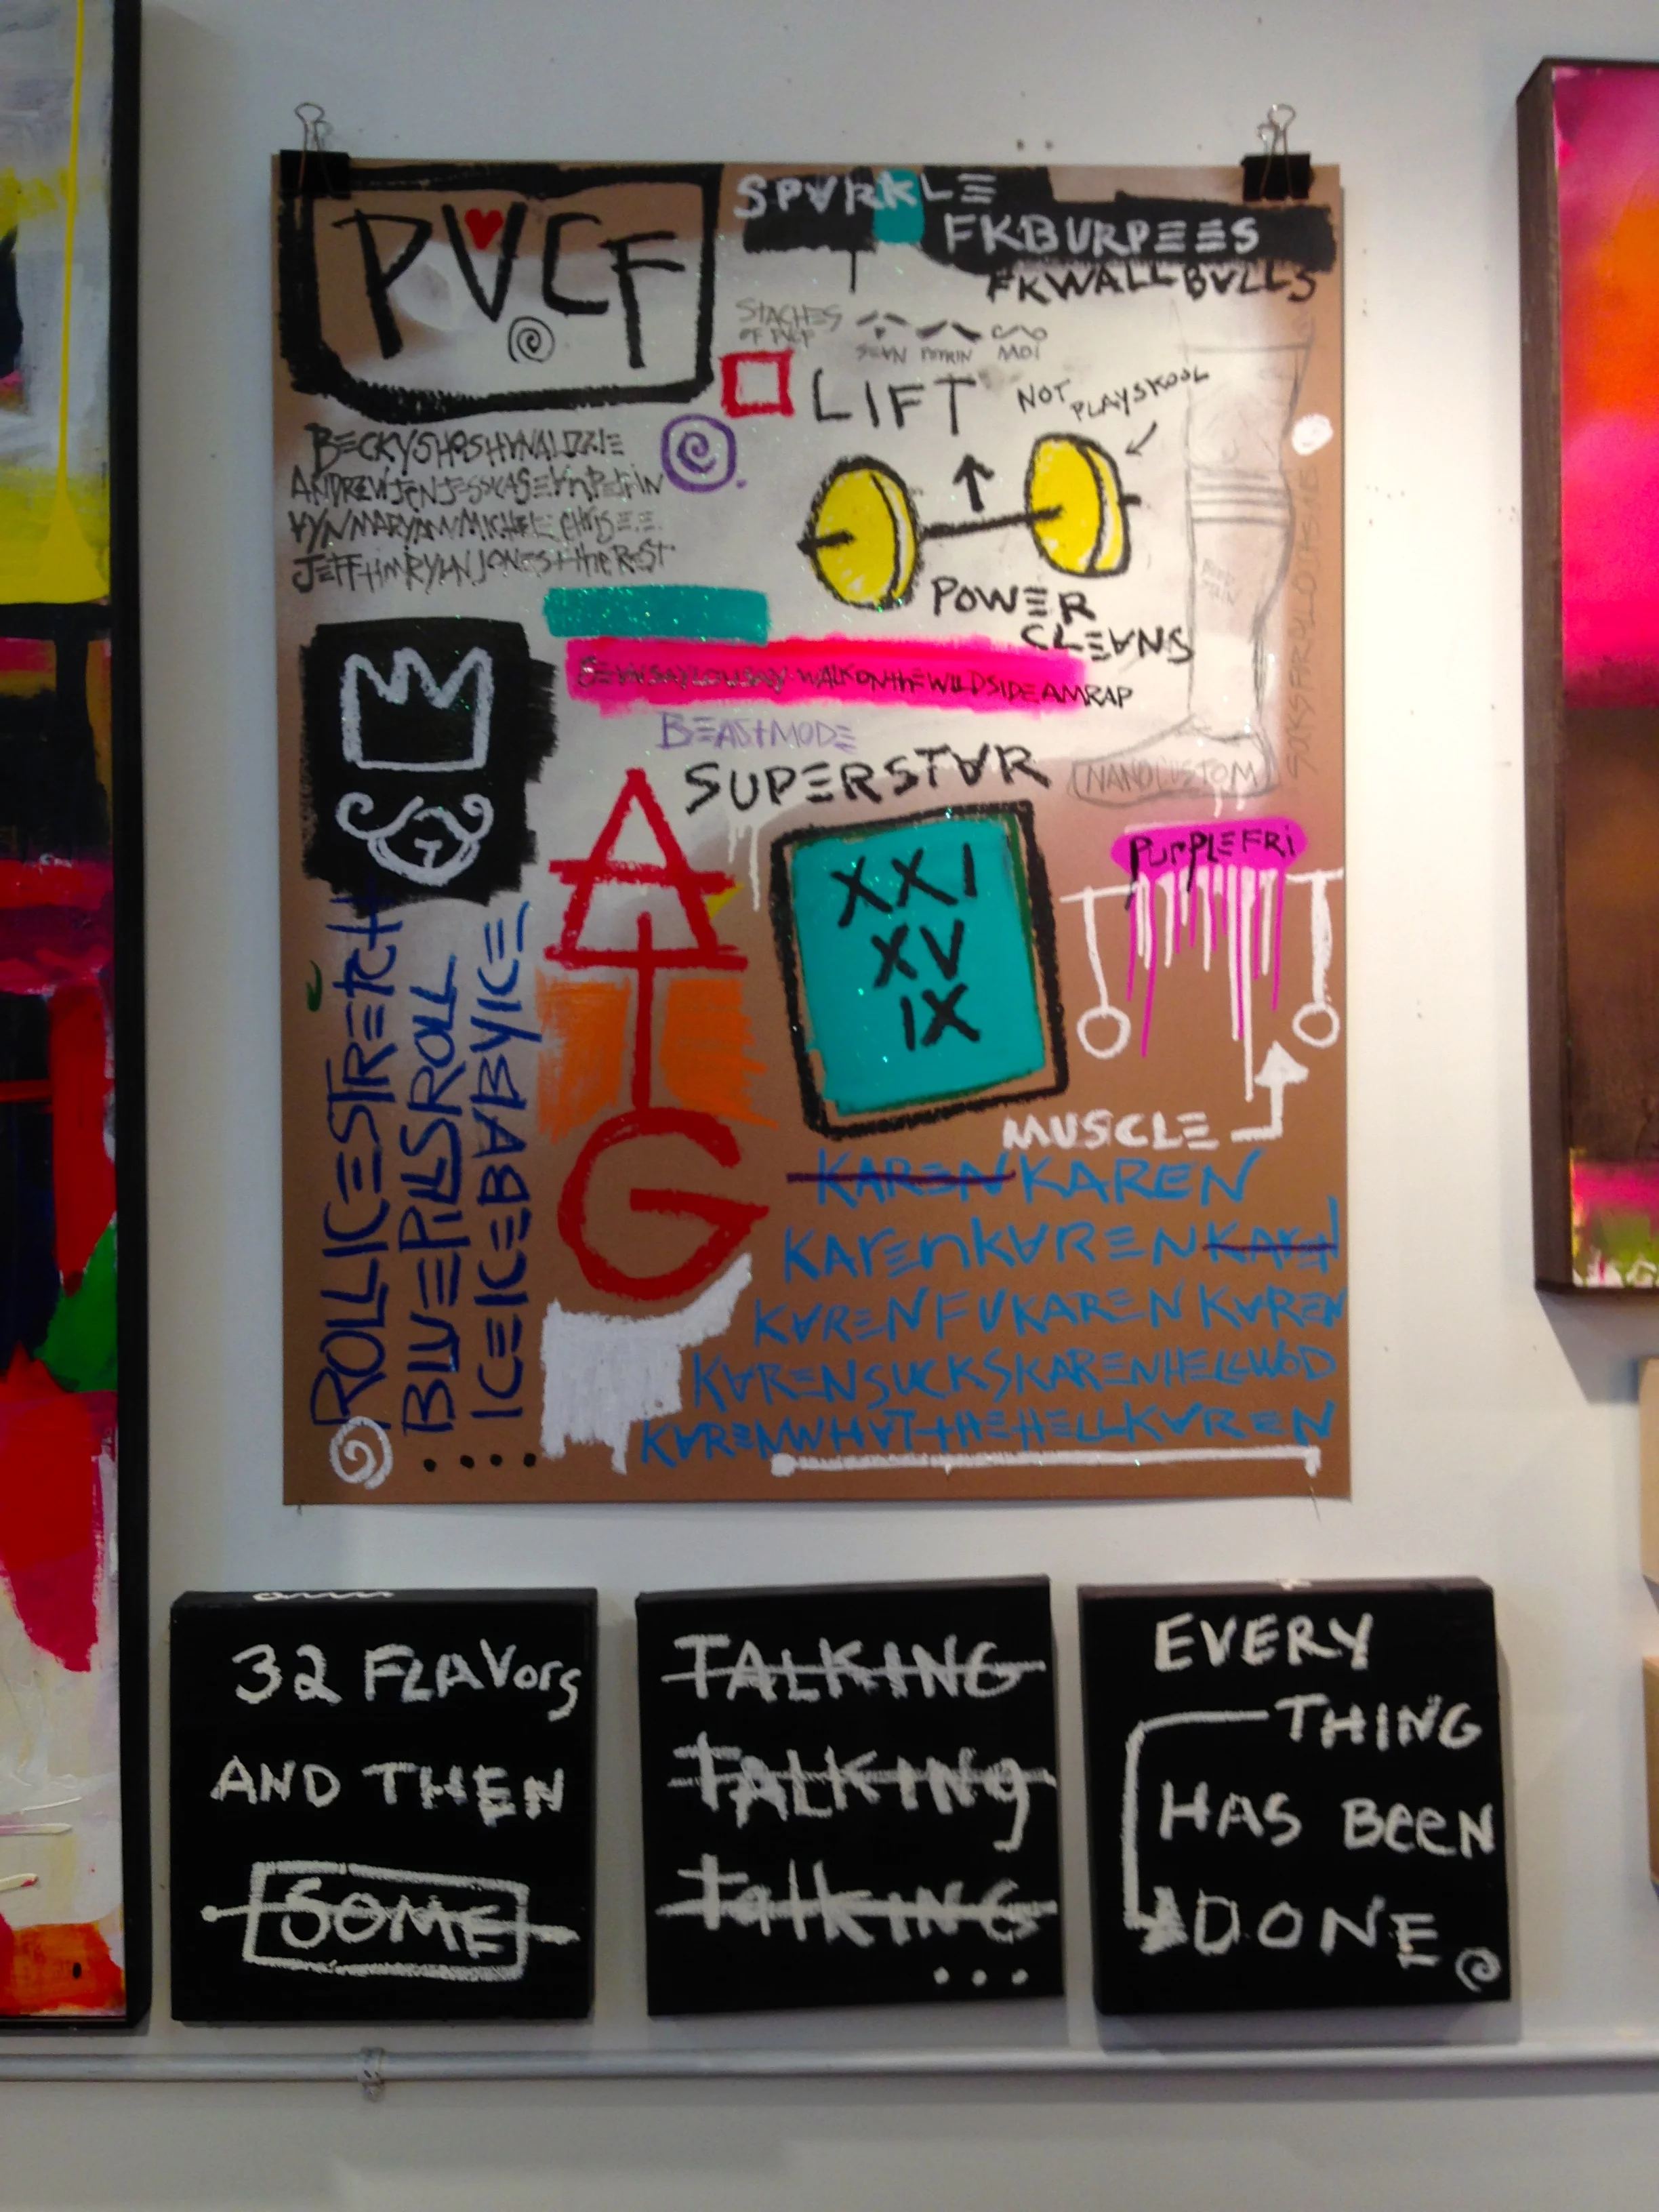 PVCF
SPARKLE
FKBURPEES
FKWALLBALLS
STACHES
OF PVCF
SEAN PETRIN MOI
LIFT
NOT PLAYSKOOL
BECKYSHOSHANALIZZIE
ANDREWJENJESSICASEANPETRIN
MARYANNMICHELE
JEFFTIMRYANJONES+THEREST
POWER
CLEANS
SEANSAYLOUSAY-WALKONTHEWILDSIDEAMRAP
BEASTMODE
SUPERSTAR
NANOCUSTOM
ATG
XXI
XV
IX
PURPLEFRI
MUSCLE
ROLLICESTRETCH
BLUEPILLSROLL
ICEICEBABYICE
KARENKAREN
KARENKARENKAREN
KARENFUKARENKAREN
KARENSUCKSKARENHELLWOD
KARENWHATTHEHELLKAREN
32 FLAVORS
AND THEN
SOME
TALKING
TALKING
TALKING
...
EVERY
THING
HAS BEEN
DONE